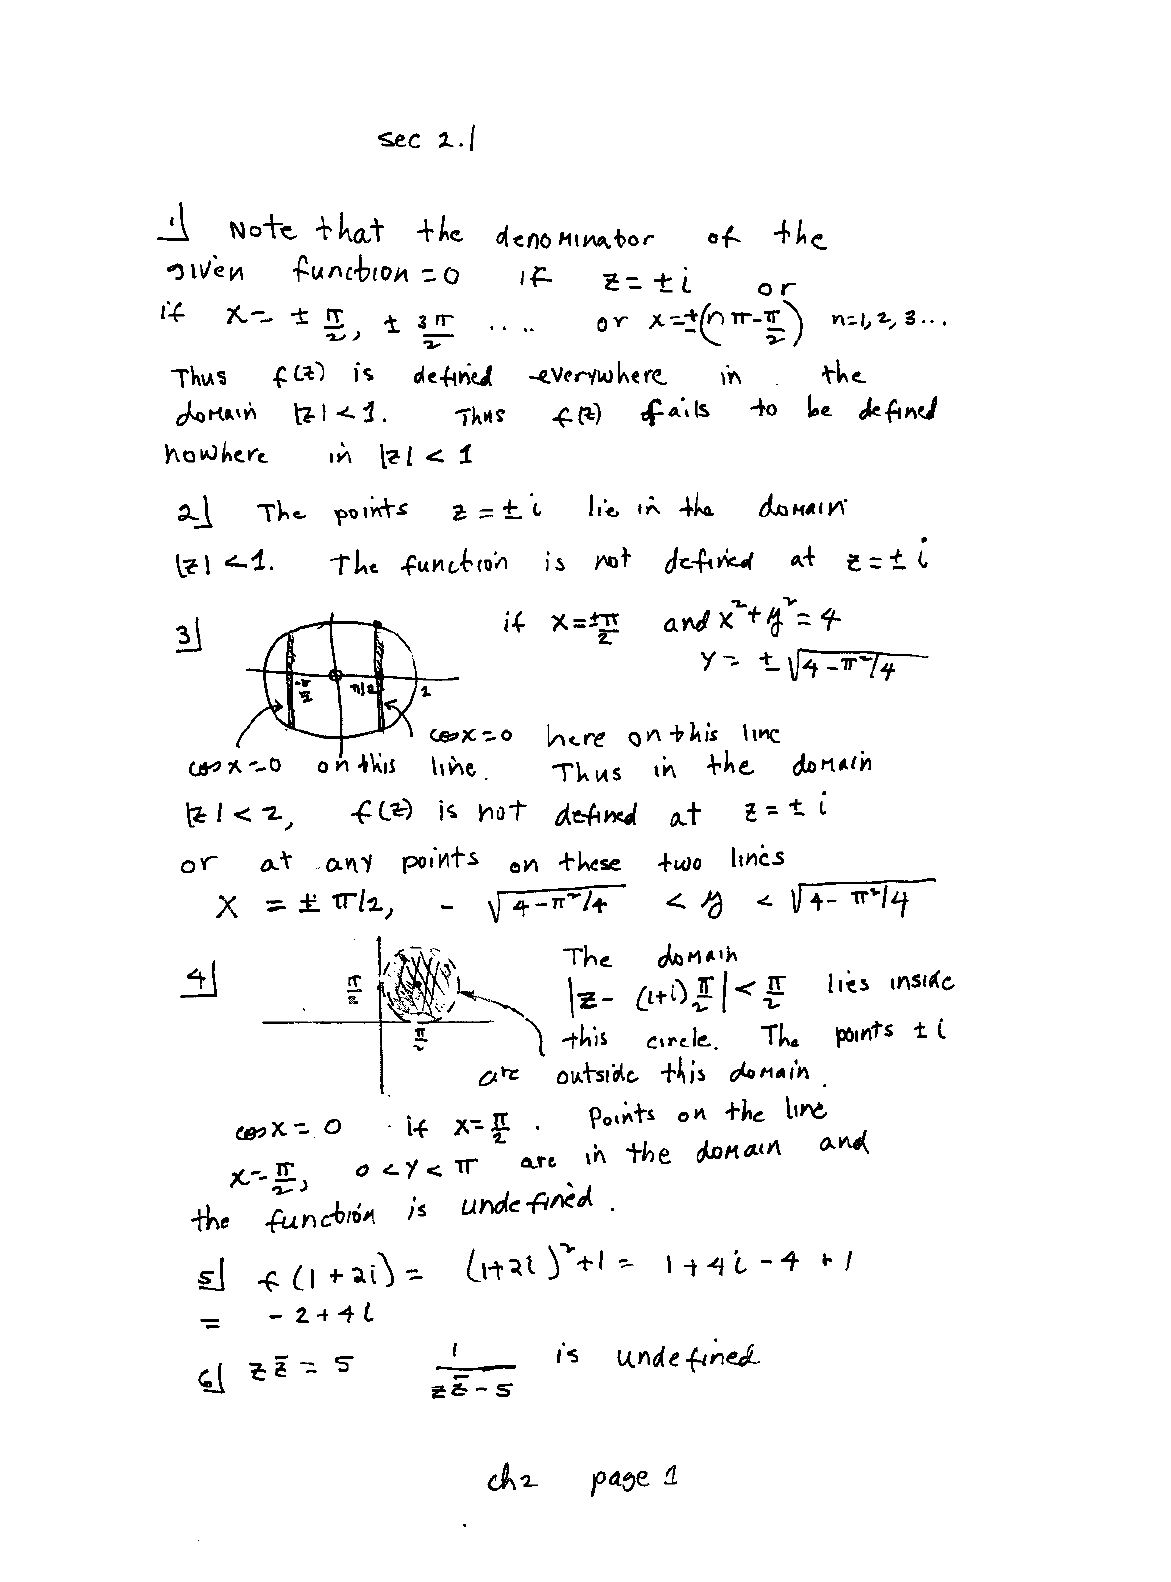 sec 2.1
1] Note that the denominator of the
given function = 0 if z = ± i or
if x = ± π/2, ± 3π/2 .... or x = ±(nπ - π/2) n=1, 2, 3...
Thus f(z) is defined everywhere in the
domain |z| < 1. Thus f(z) fails to be defined
nowhere in |z| < 1
2] The points z = ± i lie in the domain
|z| < 1. The function is not defined at z = ± i
3] if x = ±π/2 and x² + y² = 4
y = ± √(4 - π²/4)
-π/2 π/2 2
cos x = 0 here on this line
cos x = 0 on this line. Thus in the domain
|z| < 2, f(z) is not defined at z = ± i
or at any points on these two lines
x = ± π/2, - √(4 - π²/4) < y < √(4 - π²/4)
4] The domain
π/2 |z - (1+i) π/2| < π/2 lies inside
π/2 this circle. The points ± i
are outside this domain.
cos x = 0 if x = π/2. Points on the line
x = π/2, 0 < y < π are in the domain and
the function is undefined.
5] f(1 + 2i) = (1+2i)² + 1 = 1 + 4i - 4 + 1
= - 2 + 4i
6] z z̄ = 5 1/(z z̄ - 5) is undefined
ch 2 page 1